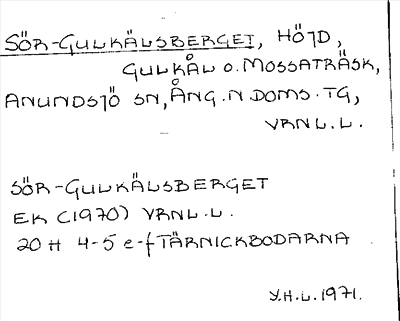 SÖR-GULKÄLSBERGET, HÖJD,
GULKÅL O. MOSSATRÄSK,
ANUNDSJÖ SN, ÅNG. N. DOMS. TG,
VRNL.L.
SÖR-GULKÄLSBERGET
EK (1970) VRNL.L.
20 H 4-5 e-f TÄRNICKBODARNA
Y.H.L. 1971.